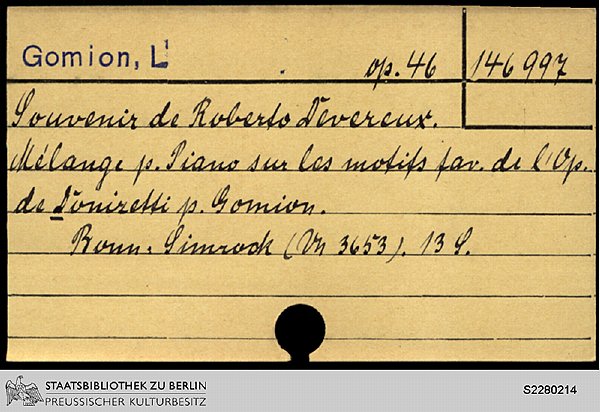 Gomion, L. op. 46 146 997
Souvenir de Roberto Devereux.
Mélange p. Piano sur les motifs fav. de l'Op.
de Donizetti p. Gomion.
Bonn: Simrock (Vn 3653). 13 S.
STAATSBIBLIOTHEK ZU BERLIN
PREUSSISCHER KULTURBESITZ
S2280214